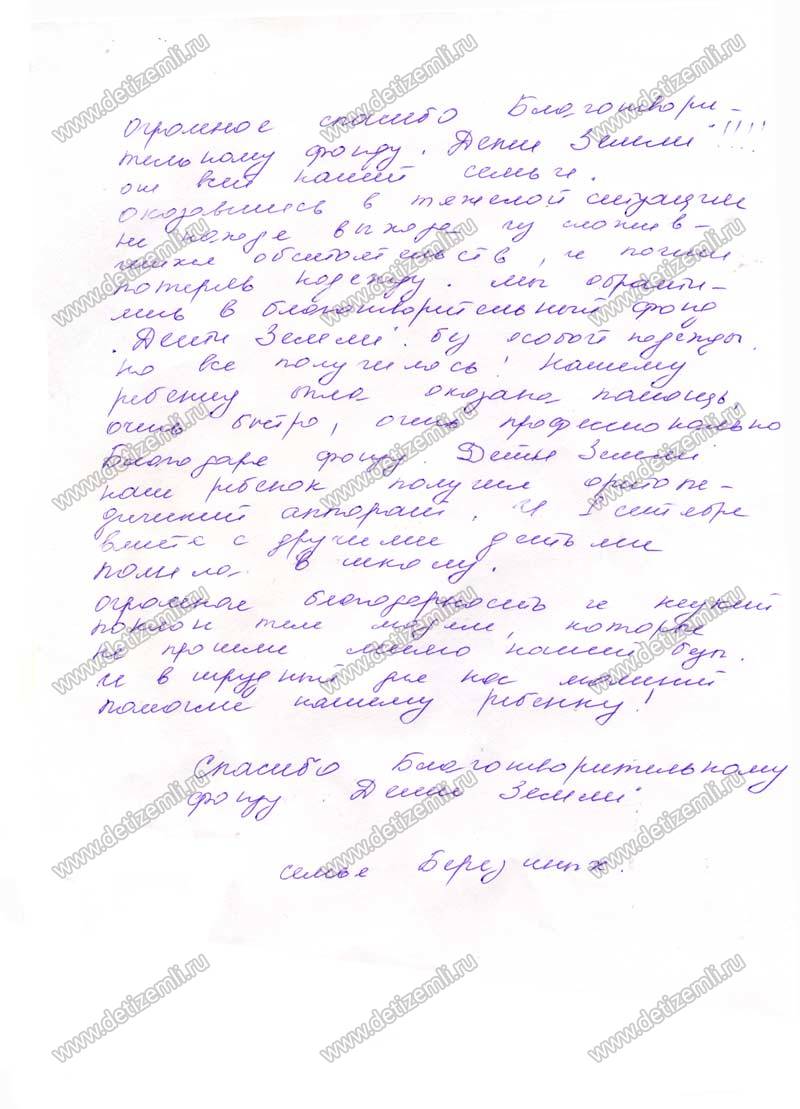 Огромное спасибо Благотвори-
тельному фонду "Дети Земли"!!!!
от всей нашей семьи.
Оказавшись в тяжелой ситуации
не находя выхода из сложив-
шихся обстоятельств, и почти
потеряв надежду. Мы обрати-
лись в благотворительный фонд
"Дети Земли" без особой надежды.
Но все получилось! Нашему
ребенку была оказана помощь,
очень быстро, очень профессионально
Благодаря фонду "Дети Земли"
наш ребенок получил ортопе-
дический аппарат. И 1 сентября
вместе с другими детьми
пошла в школу.
Огромная благодарность и низкий
поклон тем людям, которые
не прошли мимо нашей беды.
и в трудный для нас момент
помогли нашему ребенку!
Спасибо Благотворительному
фонду "Дети Земли"
семья Березиных.
www.detizemli.ru